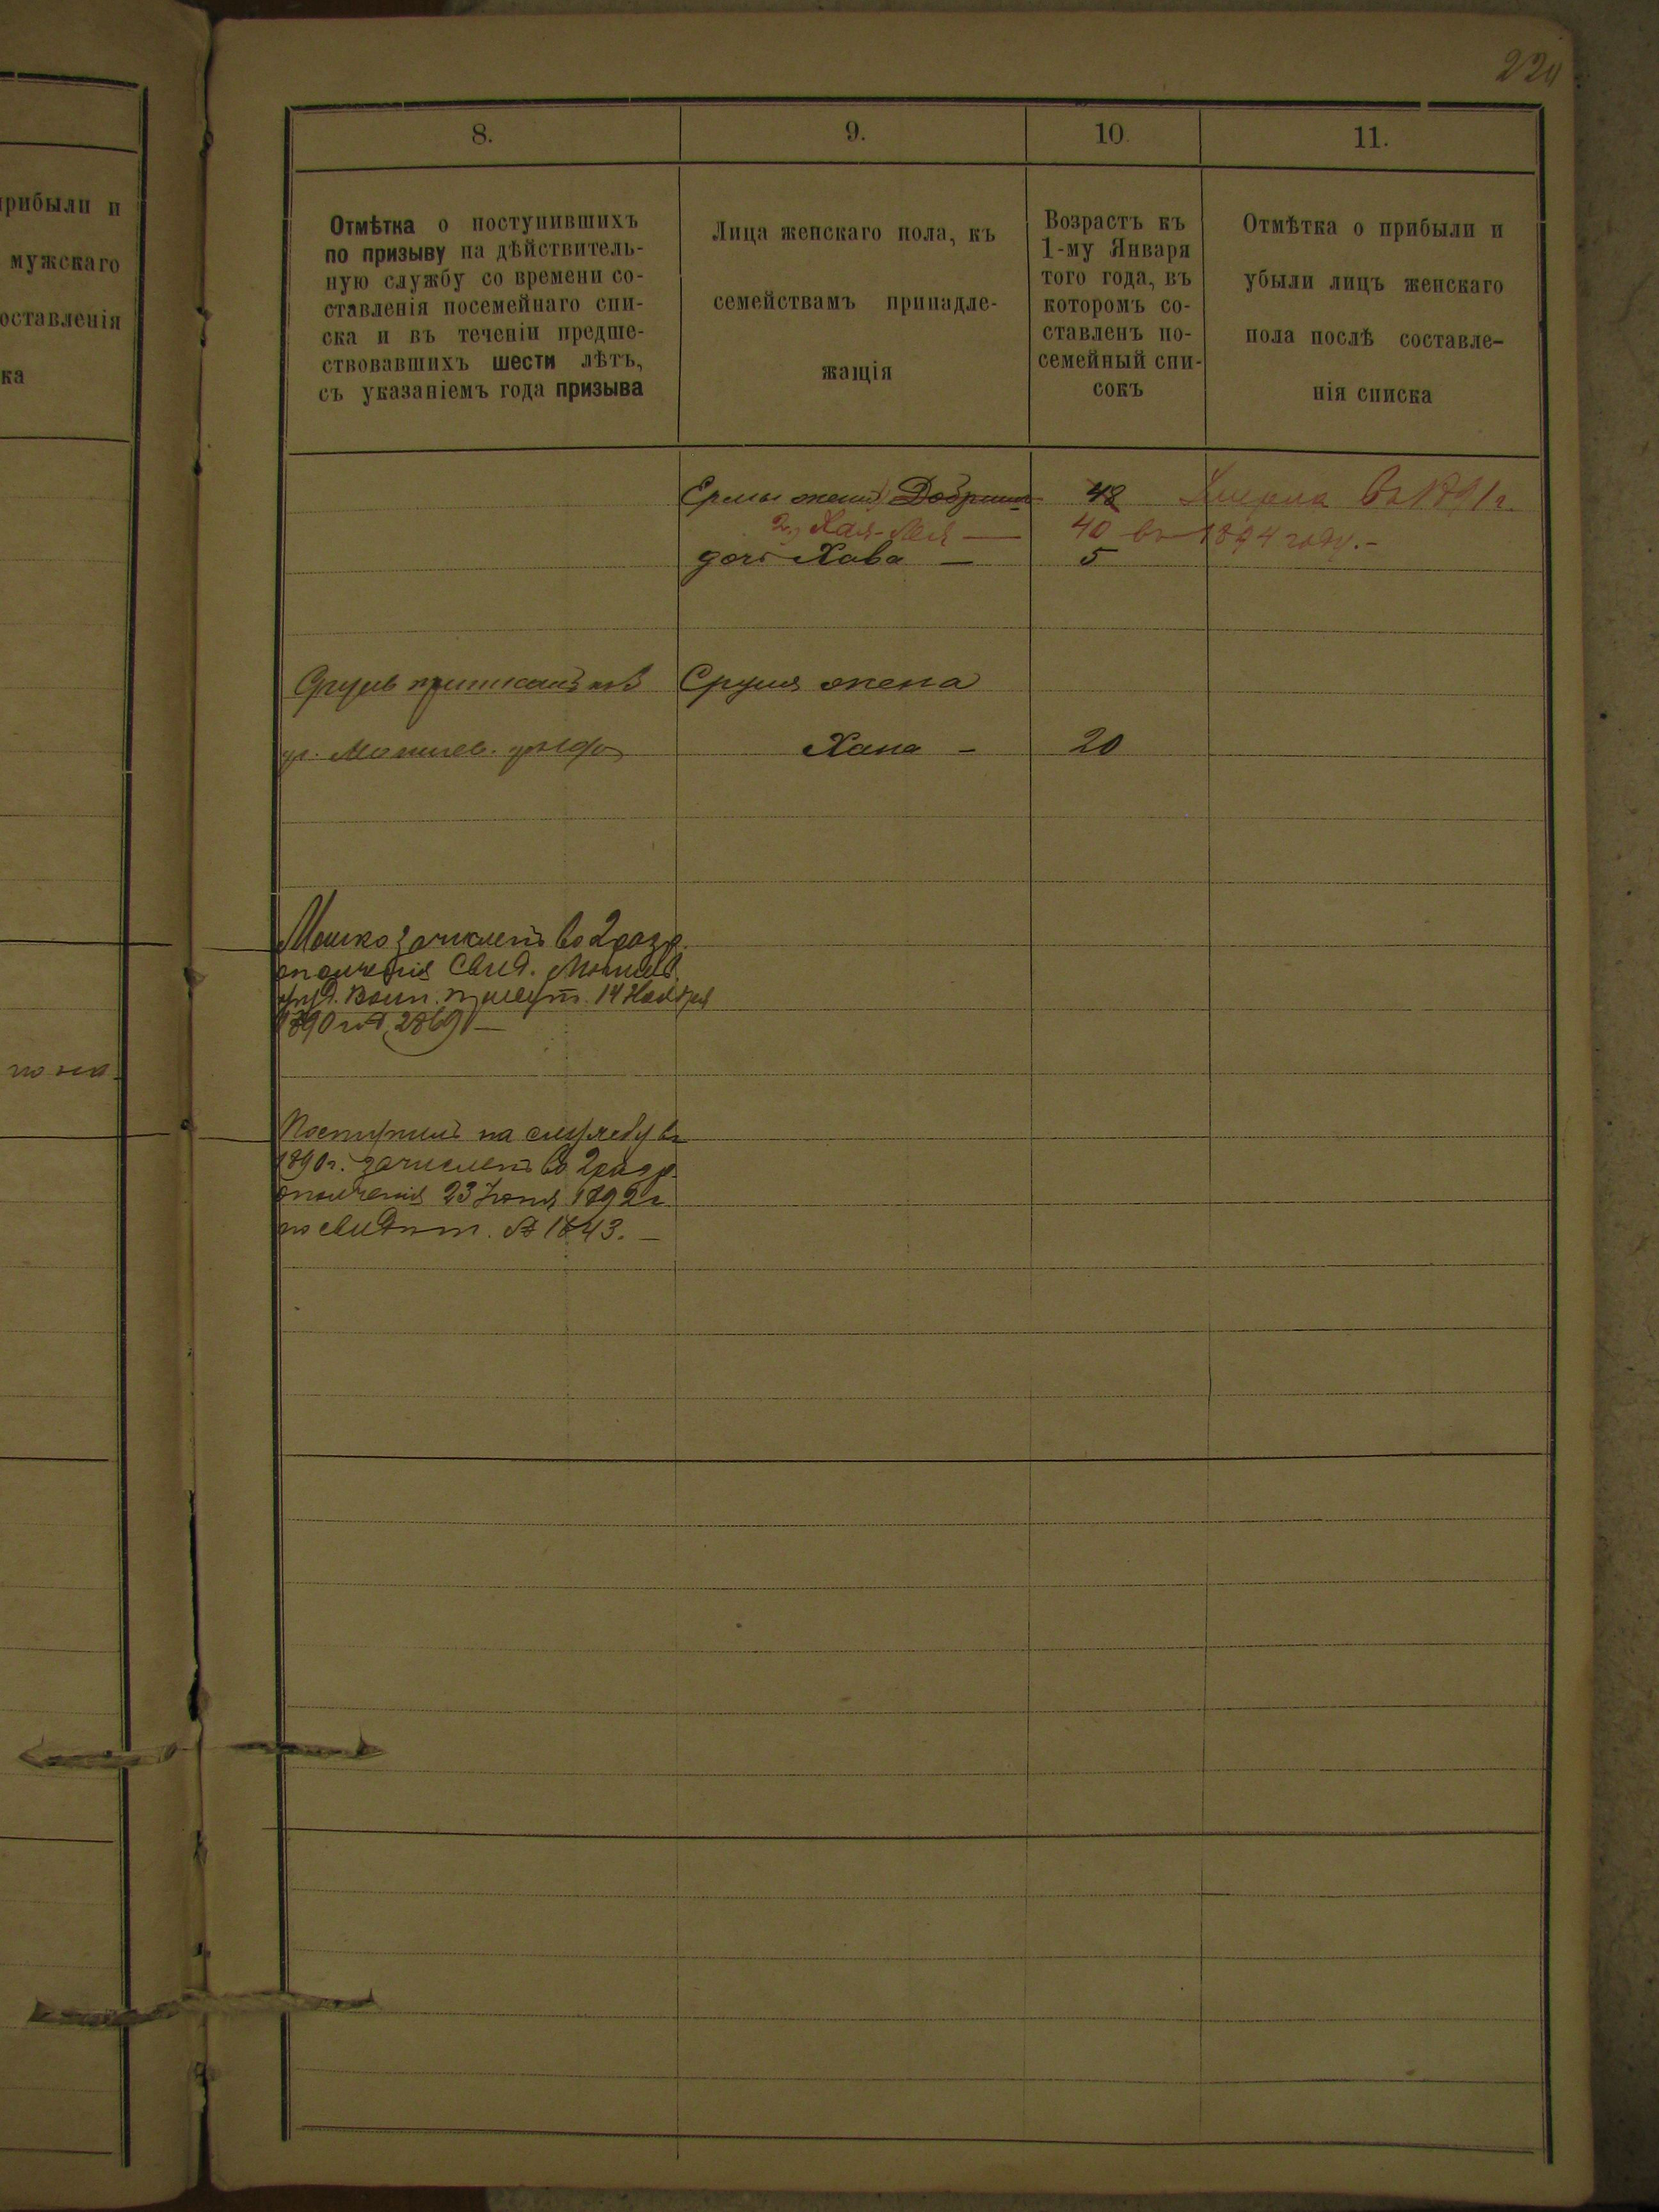 220
8.
9.
10.
11.
рибыли и
мужскаго
оставленія
ка
Отмѣтка о поступившихъ
по призыву на дѣйствитель-
ную службу со времени со-
ставленія посемейнаго спи-
ска и въ теченіи предше-
ствовавшихъ шести лѣтъ,
съ указаніемъ года призыва
Лица женскаго пола, къ
семействамъ принадле-
жащія
Возрастъ къ
1-му Января
того года, въ
которомъ со-
ставленъ по-
семейный спи-
сокъ
Отмѣтка о прибыли и
убыли лицъ женскаго
пола послѣ составле-
нія списка
жена 48 Умерла въ 1891 г.
2) Хая- — 40 въ 1894 году. —
дочь Хава — 5
Сруля жена
Хана — 20
Мошко зачисленъ во 2 разр.
ополченія Свид. Могилев.
Воин. присут. 14 Ноября
1890 2869 —
по
Поступилъ на службу въ
1890 г. зачисленъ во 2 разр.
ополченія 23 Іюня 1892 г.
по свидѣт. № 1843. —